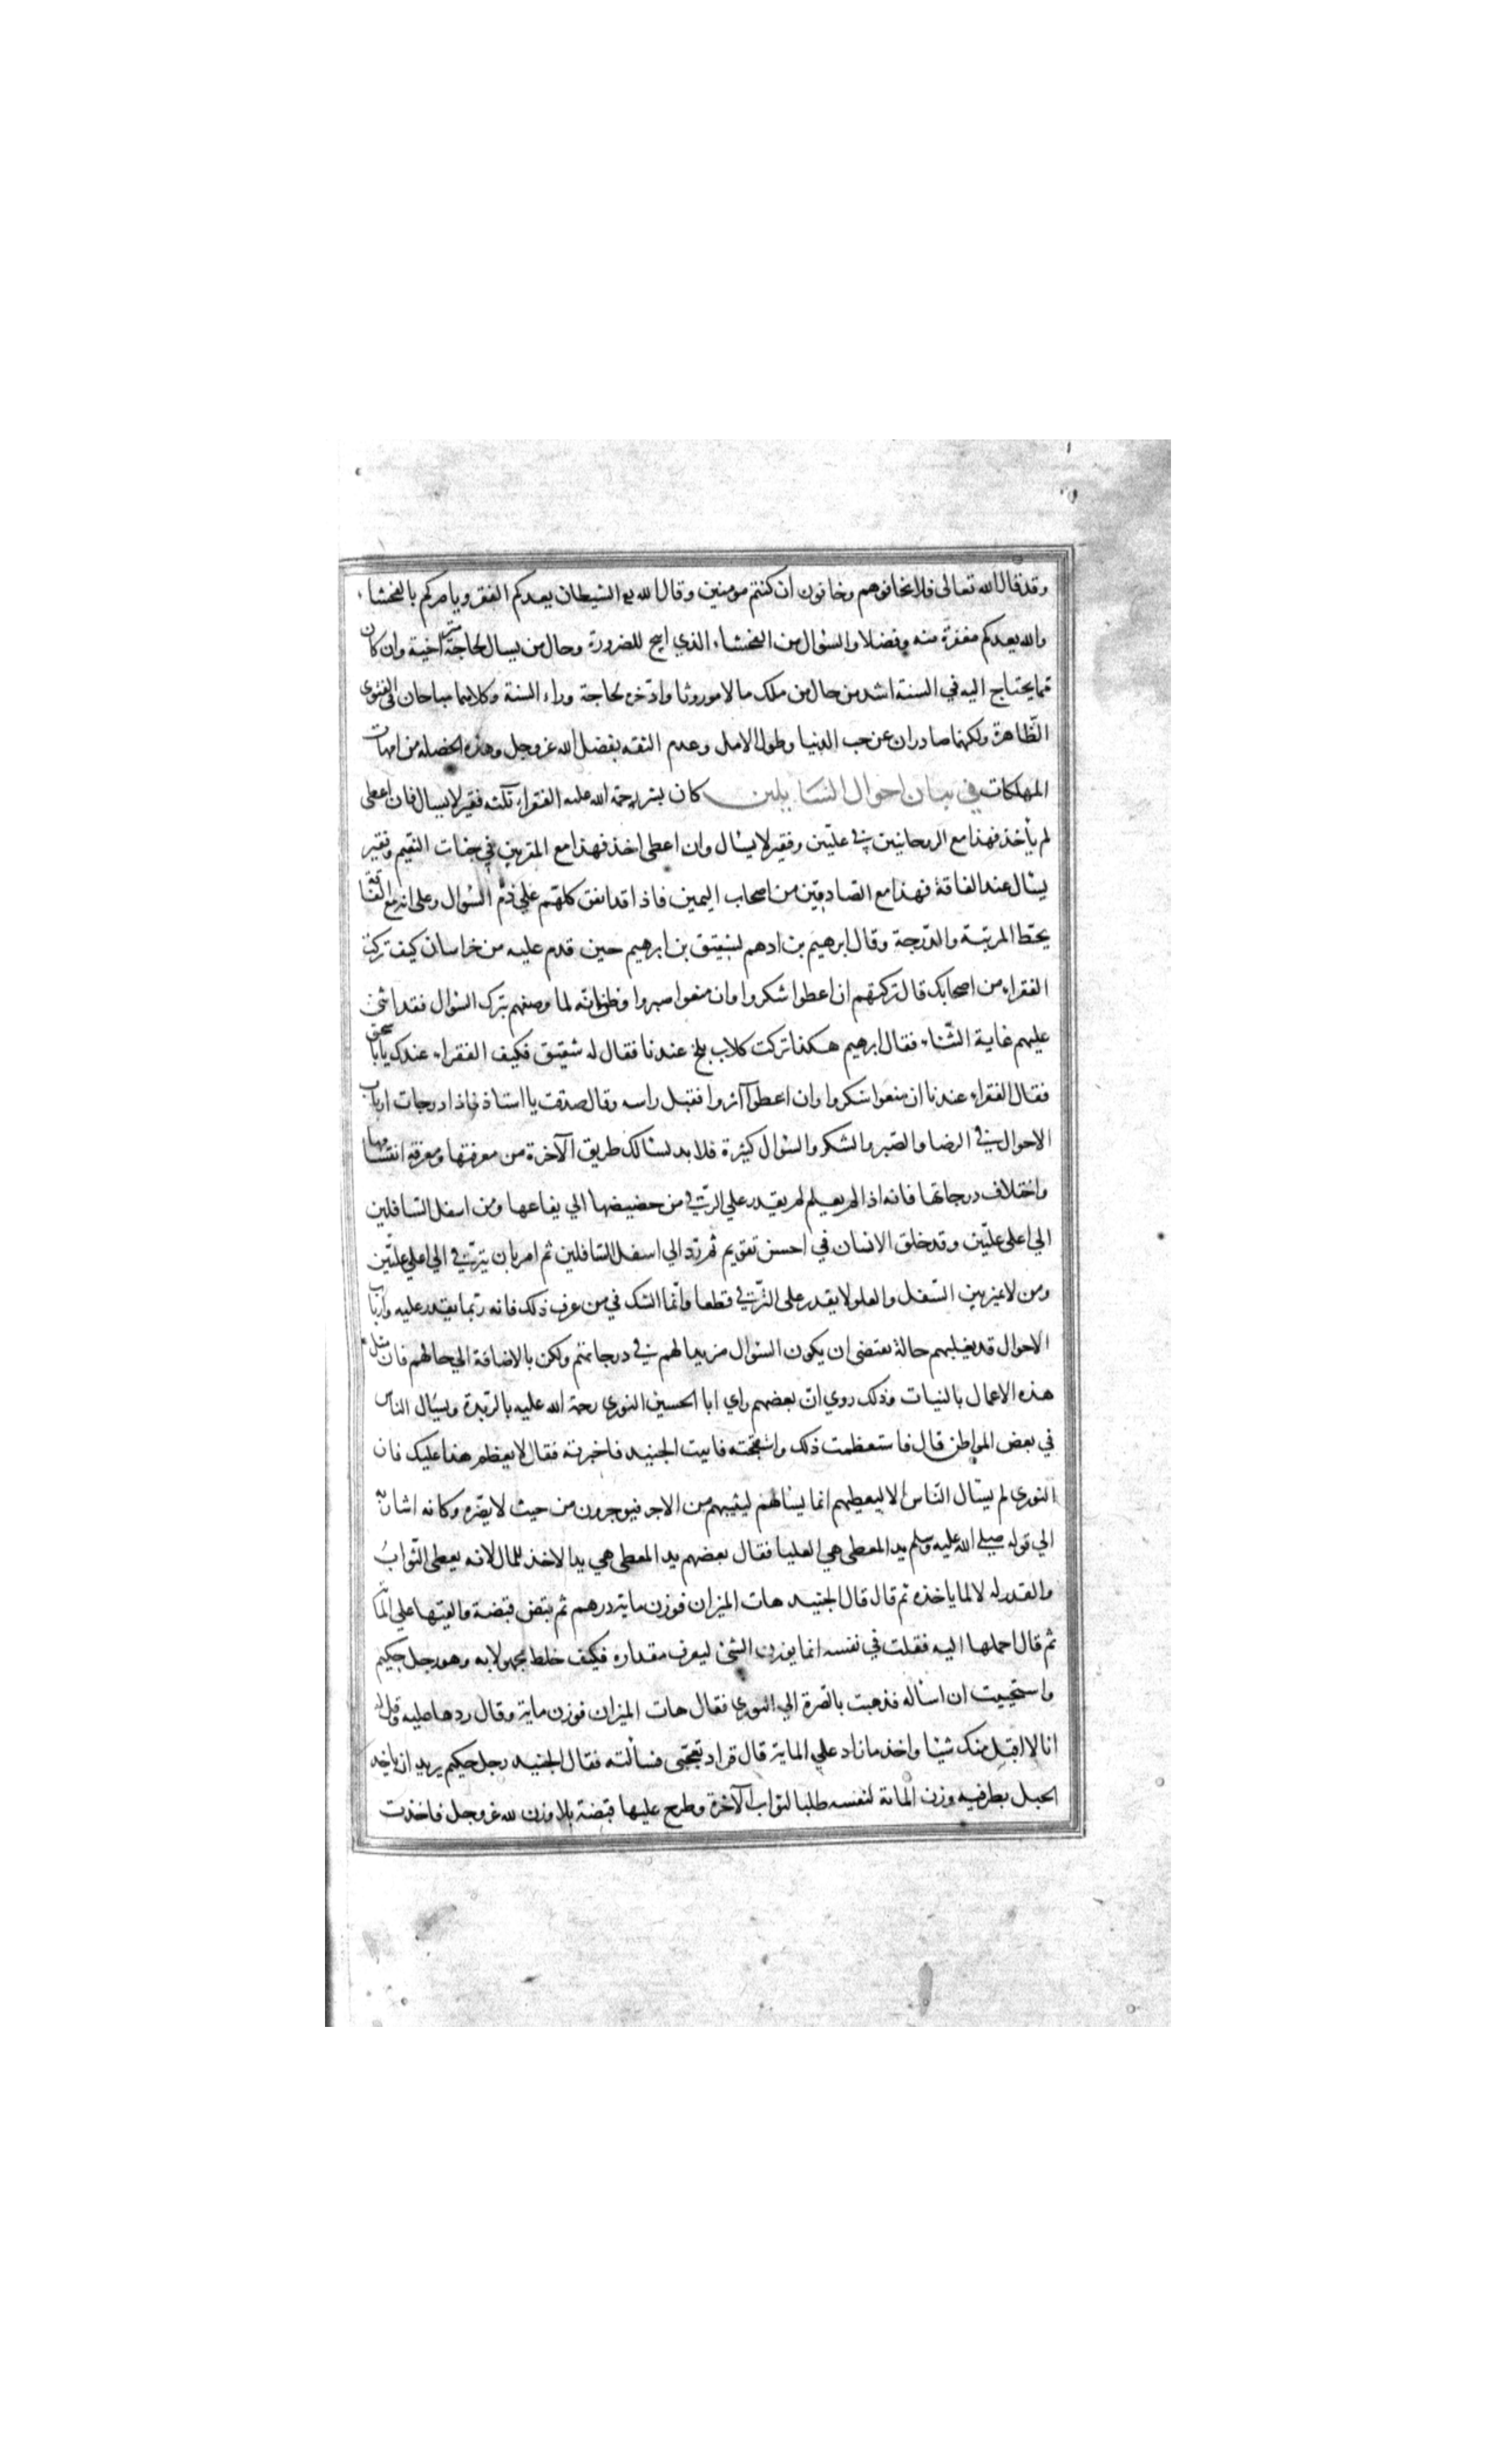 وقد قال الله تعالى فلا تخافوهم وخافون ان كنتم مومنين وقال الله تع الشيطان يعدكم الفقر ويامركم بالفحشاء
والله يعدكم مغفرة منه وفضلا والسؤال من الفحشاء الذي ابيح للضرورة وحال من يسال لحاجة متراخية وان كان
مما يحتاج اليه في السنة اشد من حال من ملك مالا موروثا وادخره لحاجة وراء السنة وكلاهما مباحان في الفتوى
الظاهرة ولكنهما صادران عن حب الدنيا وطول الامل وعدم الثقة بفضل الله عز وجل وهذه الخصلة من امهات
المهلكات في بيان احوال السايلين كان بشر رحمة الله عليه الفقراء ثلثة فقير لا يسال فان اعطى
لم يأخذ فهذا مع الروحانيين في عليين وفقير لا يسال وان اعطى اخذ فهذا مع المقربين في جنات النعيم وفقير
يسال عند الفاقة فهذا مع الصادقين من اصحاب اليمين فاذا قد اتفق كلهم على ذم السؤال وعلى انه مع الفاقة
يحط المرتبة والدرجة وقال ابرهيم بن ادهم لشقيق بن ابرهيم حين قدم عليه من خراسان كيف تركت
الفقراء من اصحابك قال تركتهم ان اعطوا شكروا وان منعوا صبروا وظن انه لما وصفهم بترك السؤال فقد اثنى
عليهم غاية الثناء فقال ابرهيم هكذا تركت كلاب بلخ عندنا فقال له شقيق فكيف الفقراء عندك يابا اسحق
فقال الفقراء عندنا ان منعوا شكروا وان اعطوا آثروا فقبل راسه وقال صدقت يا استاذ فاذا درجات ارباب
الاحوال في الرضا والصبر والشكر والسؤال كثيرة فلا بد لسالك طريق الآخرة من معرفتها ومعرفة انقسامها
واختلاف درجاتها فانه اذا لم يعلم لم يقدر علي الترقي من حضيضها الي يفاعها ومن اسفل السافلين
الي اعلى عليين وقد خلق الانسان في احسن تقويم ثم رد الي اسفل السافلين ثم امر بان يترقى الي اعلي عليين
ومن لا يميز بين السفل والعلو لا يقدر على الترقي قطعا وانما الشك في من عرف ذلك فانه ربما يقدر عليه وارباب
الاحوال قد يغلبهم حالة يقتضى ان يكون السؤال مزيدا لهم في درجاتهم ولكن بالاضافة الي حالهم فان مثل
هذه الاعمال بالنيات وذلك روي ان بعضهم راي ابا الحسين النوري رحمة الله عليه يمد يده ويسال الناس
في بعض المواطن قال فاستعظمت ذلك واستقبحته فاتيت الجنيد فاخبرته فقال لا يعظم هذا عليك فان
النوري لم يسال الناس الا ليعطيهم انما يسالهم ليثيبهم من الاجر فيوجرون من حيث لا يضره وكانه اشار به
الي قوله صلى الله عليه وسلم يد المعطى هي العليا فقال بعضهم يد المعطى هي يد الاخذ للمال لانه يعطى الثواب
والقدر له لا لما ياخذه ثم قال قال الجنيد هات الميزان فوزن ماية درهم ثم قبض قبضة والقيها علي الماية
ثم قال احملها اليه فقلت في نفسه انما يوزن الشئ ليعرف مقداره فكيف خلط مجهولا به وهو رجل حكيم
واستحييت ان اساله فذهبت بالصرة الي النوري فقال هات الميزان فوزن ماية وقال ردها عليه وقل له
انا لا اقبل منك شيئا واخذ ما زاد علي الماية قال فزاد تعجبى فسألته فقال الجنيد رجل حكيم يريد ان ياخذ
الحبل بطرفيه وزن الماية لنفسه طلبا لثواب الآخرة وطرح عليها قبضة بلا وزن لله عز وجل فاخذت